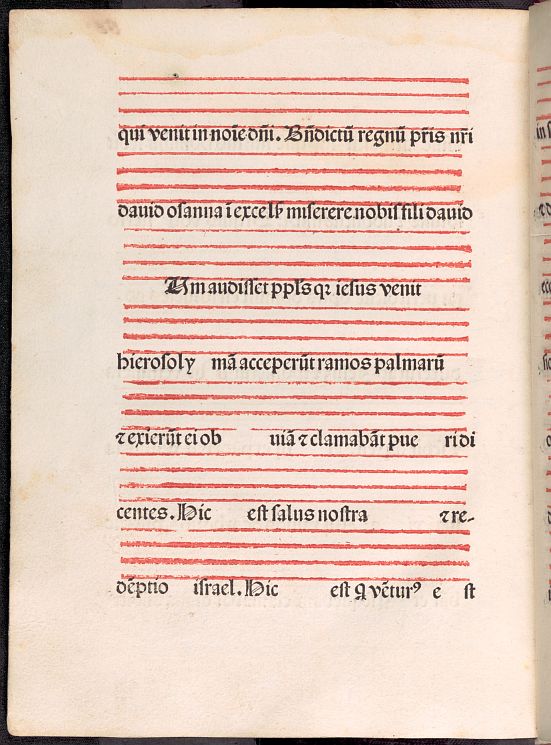 qui venit in noīe dn̄i. Bn̄dictū regnū pr̄is nr̄i
dauid osanna ī excels̄ miserere nobis fili dauid
Um audisset ppl̄s qꝛ iesus venit
hierosoly mā acceperūt ramos palmarū
⁊ exierūt ei ob uiā ⁊ clamabāt pue ri di
centes. Hic est salus nostra ⁊ re-
dēptio israel. Hic est q̄ vētur⁹ e st